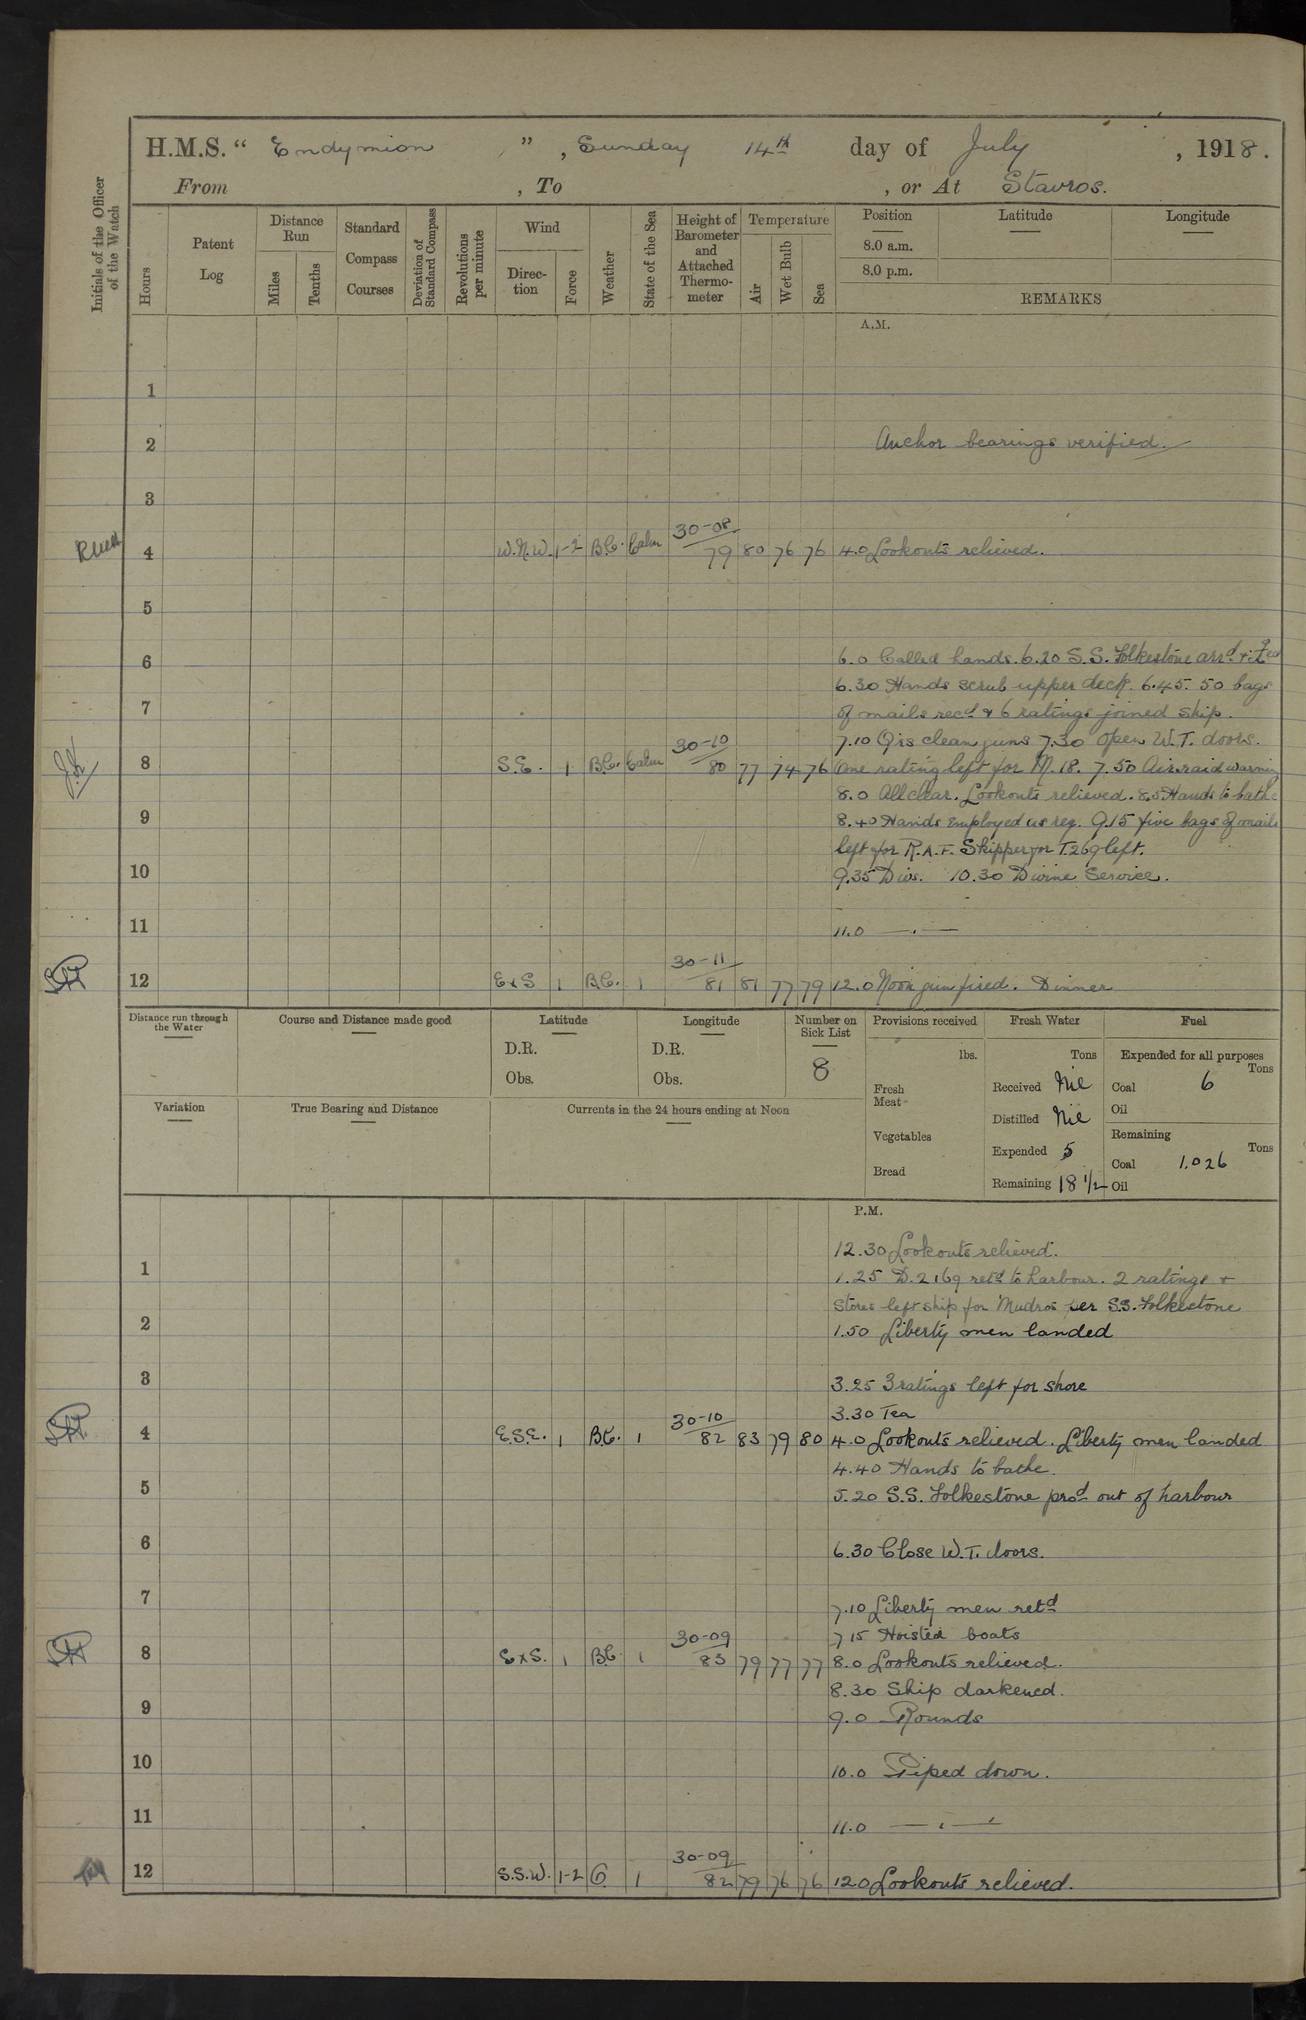 H.M.S. “ Endymion ”, Sunday 14th day of July, 1918.
From , To , or At Stavros.
Initials of the Officer of the Watch
Hours
Patent Log
Distance Run
Miles
Tenths
Standard Compass Courses
Deviation of Standard Compass
Revolutions per minute
Wind
Direc-tion
Force
Weather
State of the Sea
Height of Barometer and Attached Thermo-meter
Temperature
Air
Wet Bulb
Sea
Position
8.0 a.m.
8.0 p.m.
Latitude
Longitude
REMARKS
A.M.
1
2 Anchor bearings verified.
3
4 W.N.W. 1-2 B.C. Calm 30-08 79 80 76 76 4.0 Lookouts relieved.
5
6 6.0 Called hands. 6.20 S.S. Folkestone arrd &
6.30 Hands scrub upper deck. 6.45. 50 bags
7 of mails recd & 6 ratings joined ship.
7.10 Qrs clean guns 7.30 Open W.T. doors.
8 S.E. 1 B.C. Calm 30-10 80 77 74 76 One rating left for M.18. 7.50 Air raid warning
8.0 All clear. Lookouts relieved. 8.5 Hands to bathe
9 8.40 Hands employed as req. 9.15 five bags of mails
left for R.A.F. Skipper for T.269 left.
10 9.35 Divs. 10.30 Divine Service.
11 11.0 — . —
12 E x S 1 B.C. 1 30-11 81 81 77 79 12.0 Noon gun fired. Dinner
Distance run through the Water
Course and Distance made good
Latitude
D.R.
Obs.
Longitude
D.R.
Obs.
Number on Sick List
8
Provisions received
lbs.
Fresh Meat
Vegetables
Bread
Fresh Water
Tons
Received Nil
Distilled Nil
Expended 5
Remaining 18 1/2
Fuel
Expended for all purposes
Tons
Coal 6
Oil
Remaining
Tons
Coal 1.026
Oil
Variation
True Bearing and Distance
Currents in the 24 hours ending at Noon
P.M.
12.30 Lookouts relieved.
1 1.25 D.2169 retd to harbour. 2 ratings +
stores left ship for Mudros per S.S. Folkestone
2 1.50 Liberty men landed
3 3.25 3 ratings left for shore
3.30 Tea
4 E.S.E. 1 B.C. 1 30-10 82 83 79 80 4.0 Lookouts relieved. Liberty men landed
4.40 Hands to bathe.
5 5.20 S.S. Folkestone procd out of harbour
6 6.30 Close W.T. doors.
7 7.10 Liberty men retd
7 15 Hoisted boats
8 E x S. 1 B.C. 1 30-09 83 79 77 77 8.0 Lookouts relieved.
8.30 Ship darkened.
9 9.0 Rounds
10 10.0 Piped down.
11 11.0 — . —
12 S.S.W. 1-2 1 30-09 82 79 76 76 12.0 Lookouts relieved.